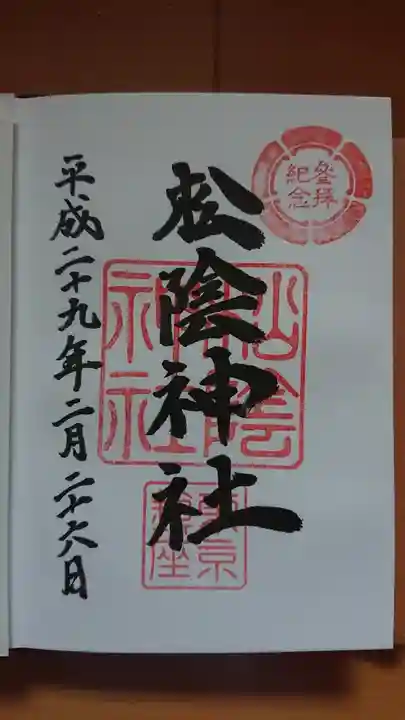 参拝
紀念
松陰神社
松陰
神社
東京
鎮座
平成二十九年二月二十六日